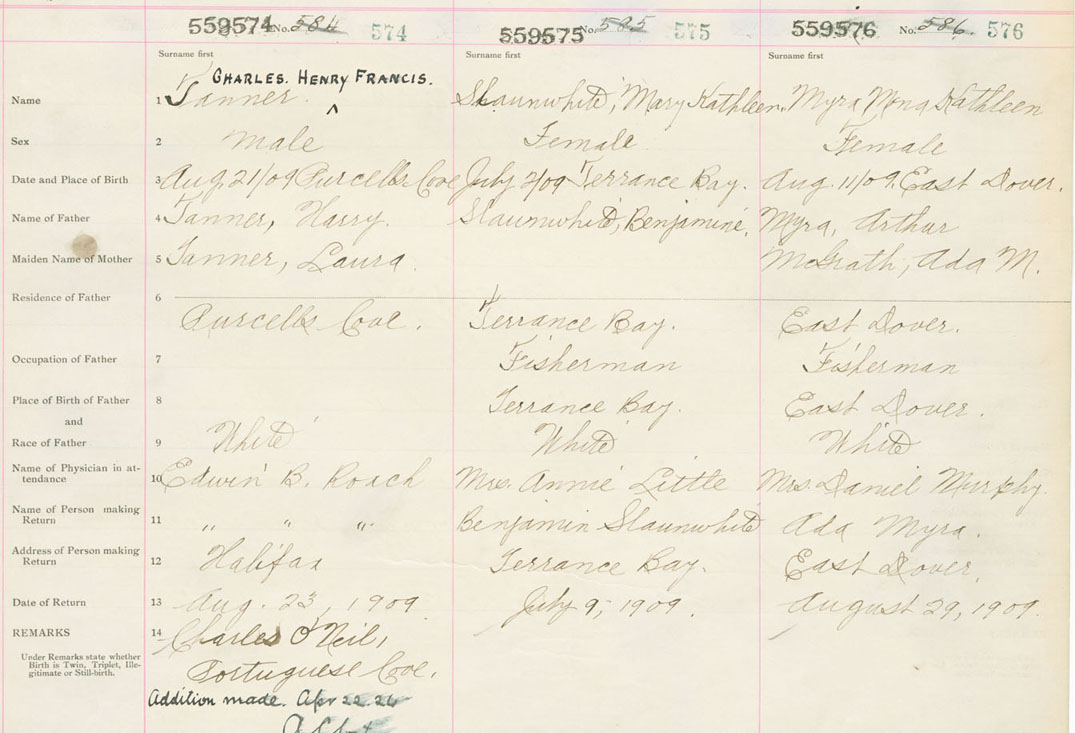 559574 No. 584 574 559575 No. 585 575 559576 No. 586 576
Surname first Surname first Surname first
CHARLES. HENRY FRANCIS.
Name 1 Tanner Shaunwhite, Mary Kathleen. Myra Mona Kathleen
Sex 2 male Female Female
Date and Place of Birth 3 Aug. 21/09 Purcells Cove July 2/09 Terrance Bay. Aug. 11/09, East Dover.
Name of Father 4 Tanner, Harry. Slaunwhite, Benjamine, Myra, Arthur
Maiden Name of Mother 5 Tanner, Laura. McGrath, Ada M.
Residence of Father 6
Purcells Cove. Terrance Bay. East Dover.
Occupation of Father 7 Fisherman Fisherman
Place of Birth of Father 8 Terrance Bay. East Dover.
and
Race of Father 9 White White White
Name of Physician in at-
tendance 10 Edwin B. Roach Mrs. Annie Little Mrs. Daniel Murphy.
Name of Person making
Return 11 " " " Benjamin Slaunwhite Ada Myra.
Address of Person making
Return 12 Halifax Terrance Bay. East Dover,
Date of Return 13 Aug. 23, 1909 July 9, 1909. August 29, 1909.
REMARKS 14 Charles O'Neil,
Under Remarks state whether
Birth is Twin, Triplet, Ille-
gitimate or Still-birth.
Portuguese Cove.
Addition made. Apr 22. 26